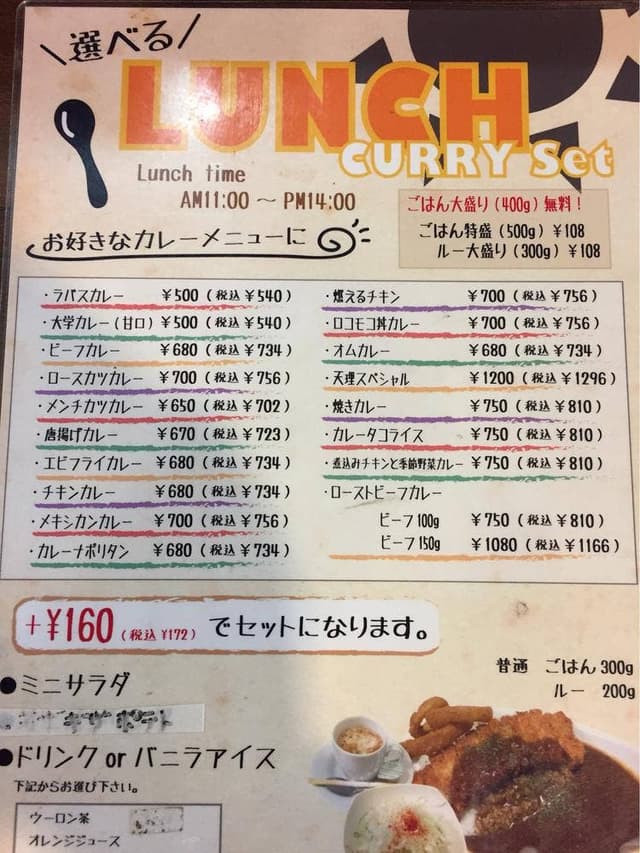 選べる
LUNCH
CURRY Set
Lunch time
AM11:00 ～ PM14:00
ごはん大盛り(400g)無料!
ごはん特盛(500g)¥108
ルー大盛り(300g)¥108
お好きなカレーメニューに
・ラパスカレー ¥500(税込¥540)
・大学カレー(甘口)¥500(税込¥540)
・ビーフカレー ¥680(税込¥734)
・ロースカツカレー ¥700(税込¥756)
・メンチカツカレー ¥650(税込¥702)
・唐揚げカレー ¥670(税込¥723)
・エビフライカレー ¥680(税込¥734)
・チキンカレー ¥680(税込¥734)
・メキシカンカレー ¥700(税込¥756)
・カレーナポリタン ¥680(税込¥734)
・燃えるチキン ¥700(税込¥756)
・ロコモコ丼カレー ¥700(税込¥756)
・オムカレー ¥680(税込¥734)
・天理スペシャル ¥1200(税込¥1296)
・焼きカレー ¥750(税込¥810)
・カレータコライス ¥750(税込¥810)
・煮込みチキンと季節野菜カレー ¥750(税込¥810)
・ローストビーフカレー
ビーフ100g ¥750(税込¥810)
ビーフ150g ¥1080(税込¥1166)
+¥160(税込¥172)でセットになります。
普通 ごはん300g
ルー 200g
●ミニサラダ
ギザギザポテト
●ドリンク or バニラアイス
下記からお選び下さい。
ウーロン茶
オレンジジュース